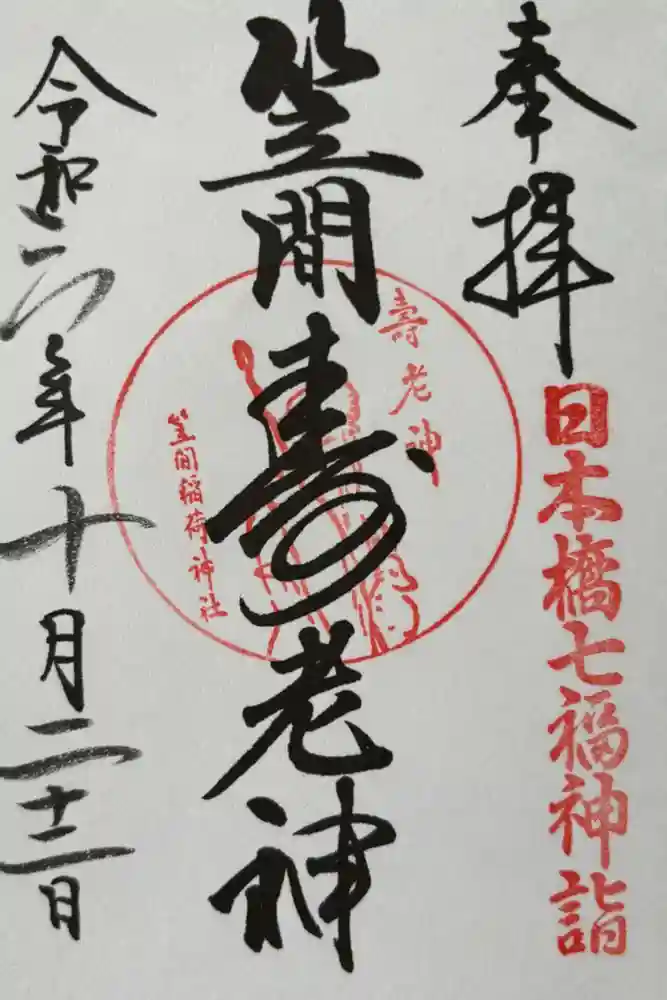 奉拝
日本橋七福神詣
笠間寿老神
壽老神
笠間稲荷神社
令和六年十月二十二日